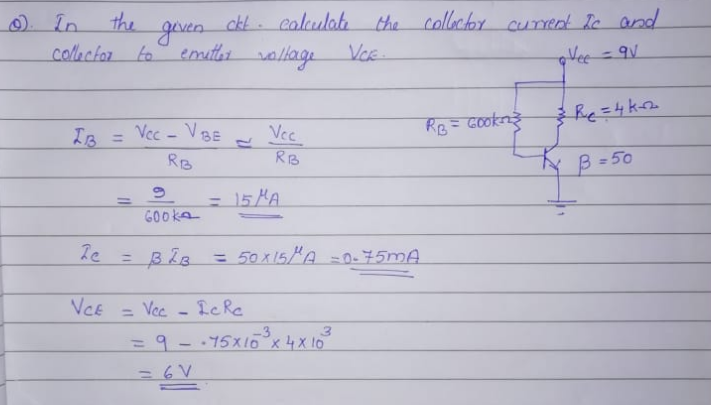 Q). In the given ckt. calculate the collector current Ic and
collector to emitter voltage VCE.
Vcc = 9V
RB = 600kΩ
Rc = 4kΩ
β = 50
IB = Vcc - VBE / RB ≃ Vcc / RB
= 9 / 600kΩ = 15 μA
Ic = β IB = 50 x 15 μA = 0.75mA
VCE = Vcc - IcRc
= 9 - .75 x 10^-3 x 4 x 10^3
= 6 V